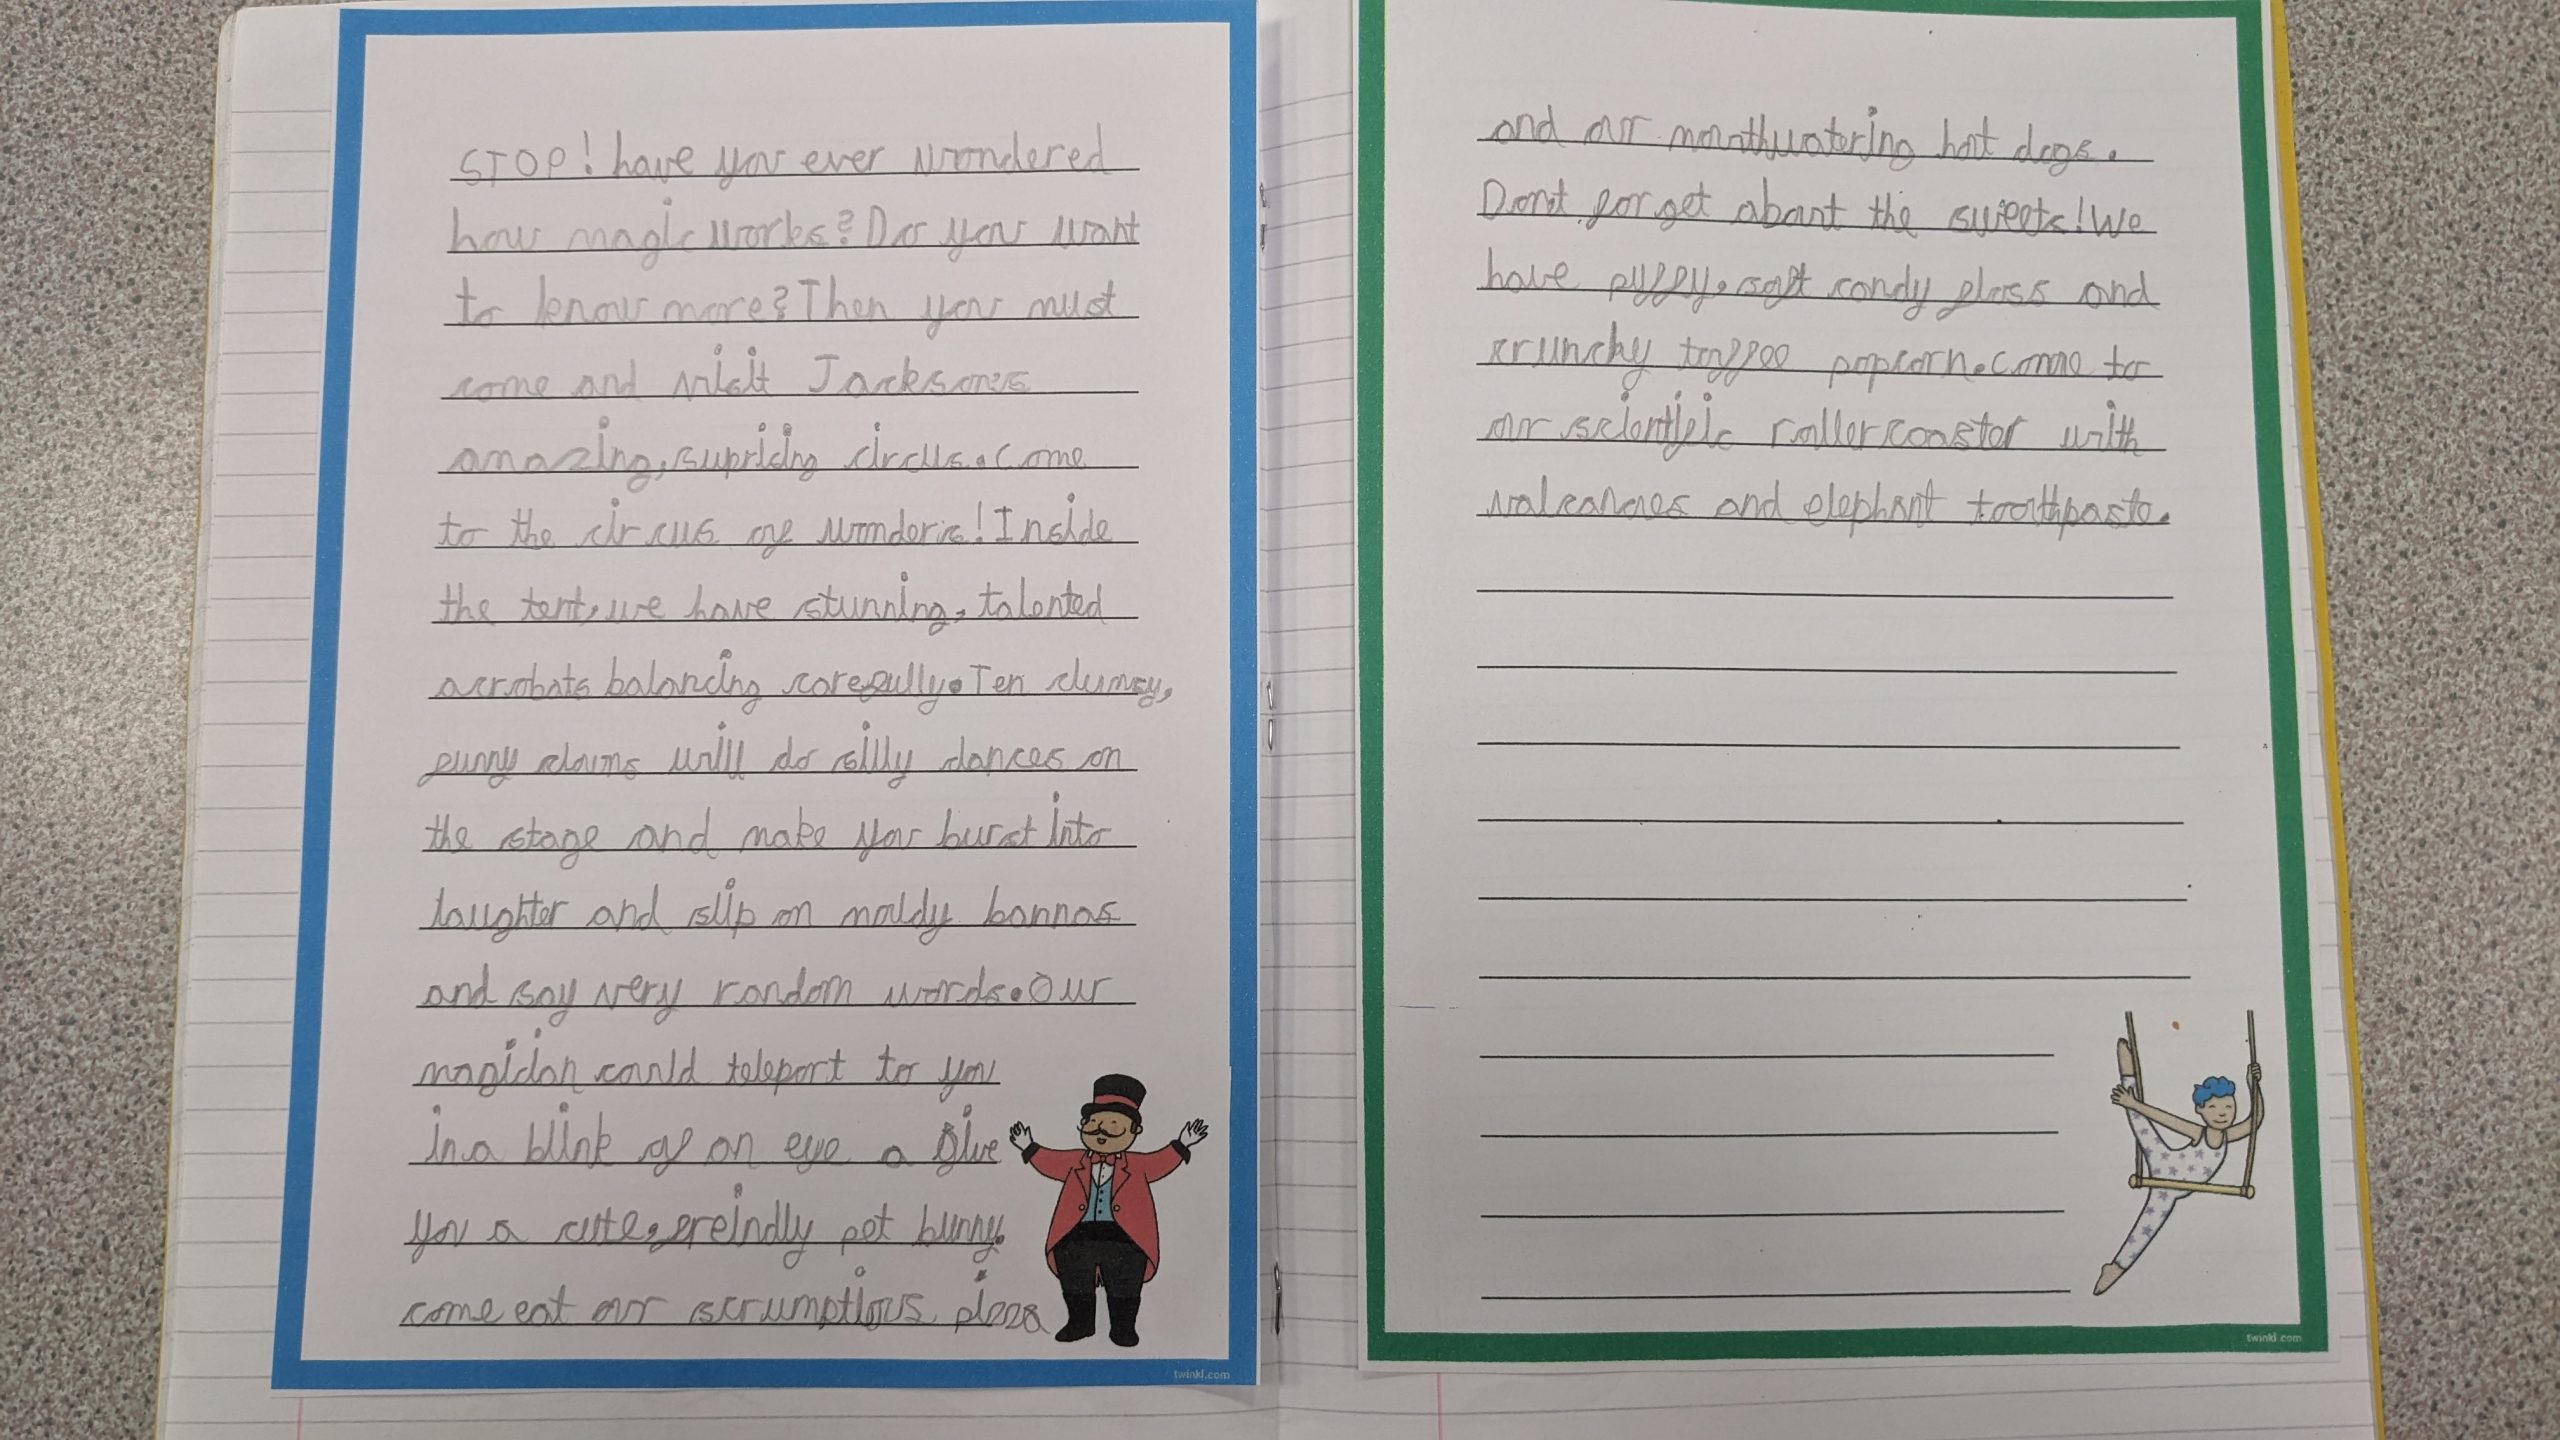 STOP! have you ever wondered
how magic works? Do you want
to know more? Then you must
come and visit Jackson's
amazing, suprising circus. Come
to the circus of wonders! Inside
the tent, we have stunning, talented
acrobats balancing carefully. Ten clumsy,
funny clowns will do silly dances on
the stage and make you burst into
laughter and slip on moldy bannas
and say very random words. Our
magician could teleport to you
in a blink of an eye a give
you a cute, freindly pet bunny.
come eat our scrumptious pizza
twinkl.com
and our mouthwatering hot dogs.
Dont forget about the sweets! We
have puffy, soft candy floss and
crunchy toffee popcorn. Come to
our scientific rollercoaster with
volcanoes and elephant toothpaste.
twinkl.com